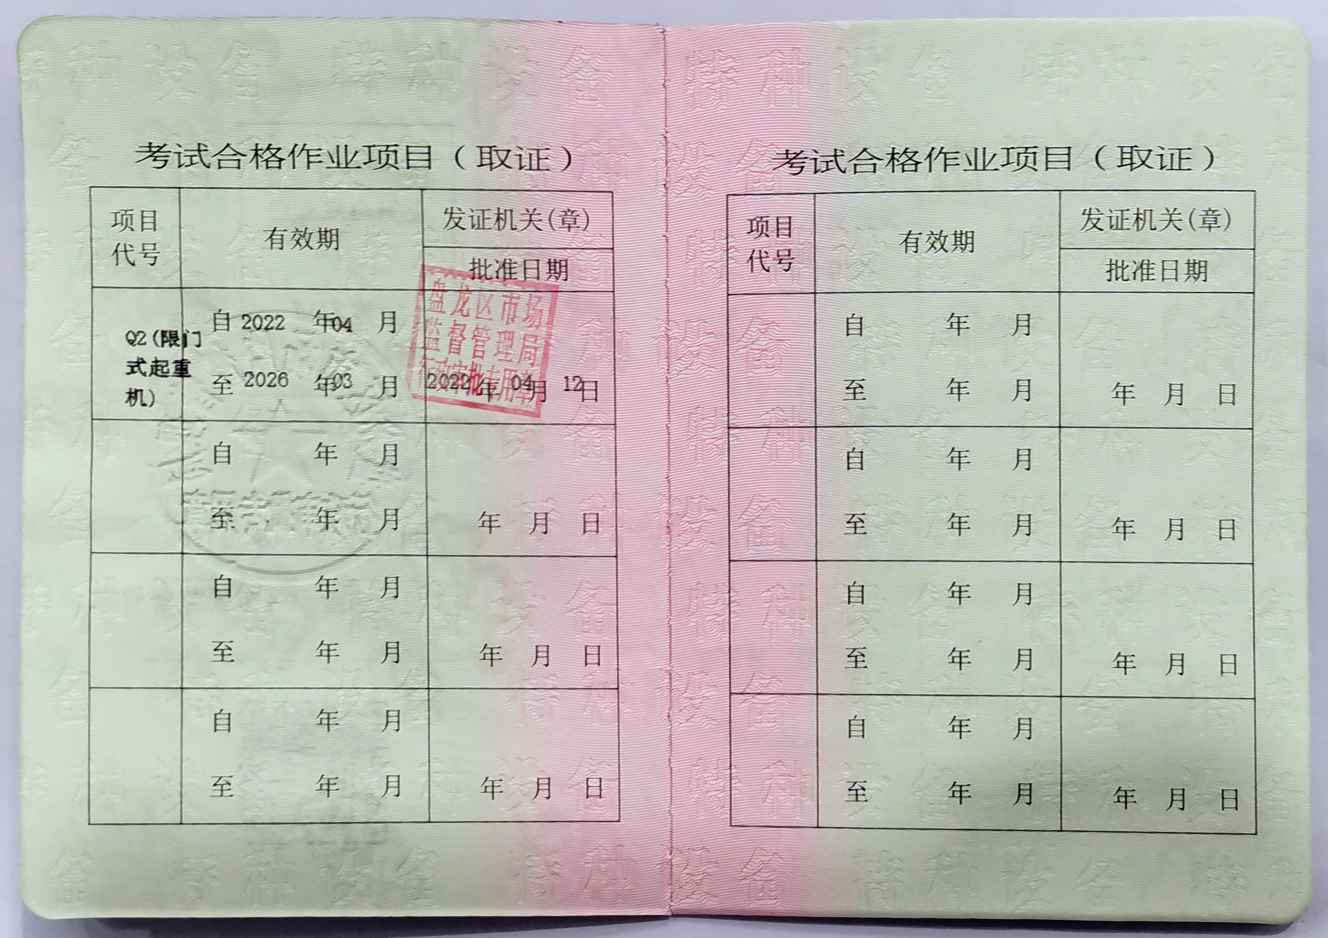 考试合格作业项目（取证）
项目
代号
有效期
发证机关(章)
批准日期
Q2(限门
式起重
机)
自2022 年04 月
至2026 年03 月
盘龙区市场
监督管理局
行政审批专用章
2022年 04月 12日
自 年 月
至 年 月
年 月 日
自 年 月
至 年 月
年 月 日
自 年 月
至 年 月
年 月 日
考试合格作业项目（取证）
项目
代号
有效期
发证机关(章)
批准日期
自 年 月
至 年 月
年 月 日
自 年 月
至 年 月
年 月 日
自 年 月
至 年 月
年 月 日
自 年 月
至 年 月
年 月 日